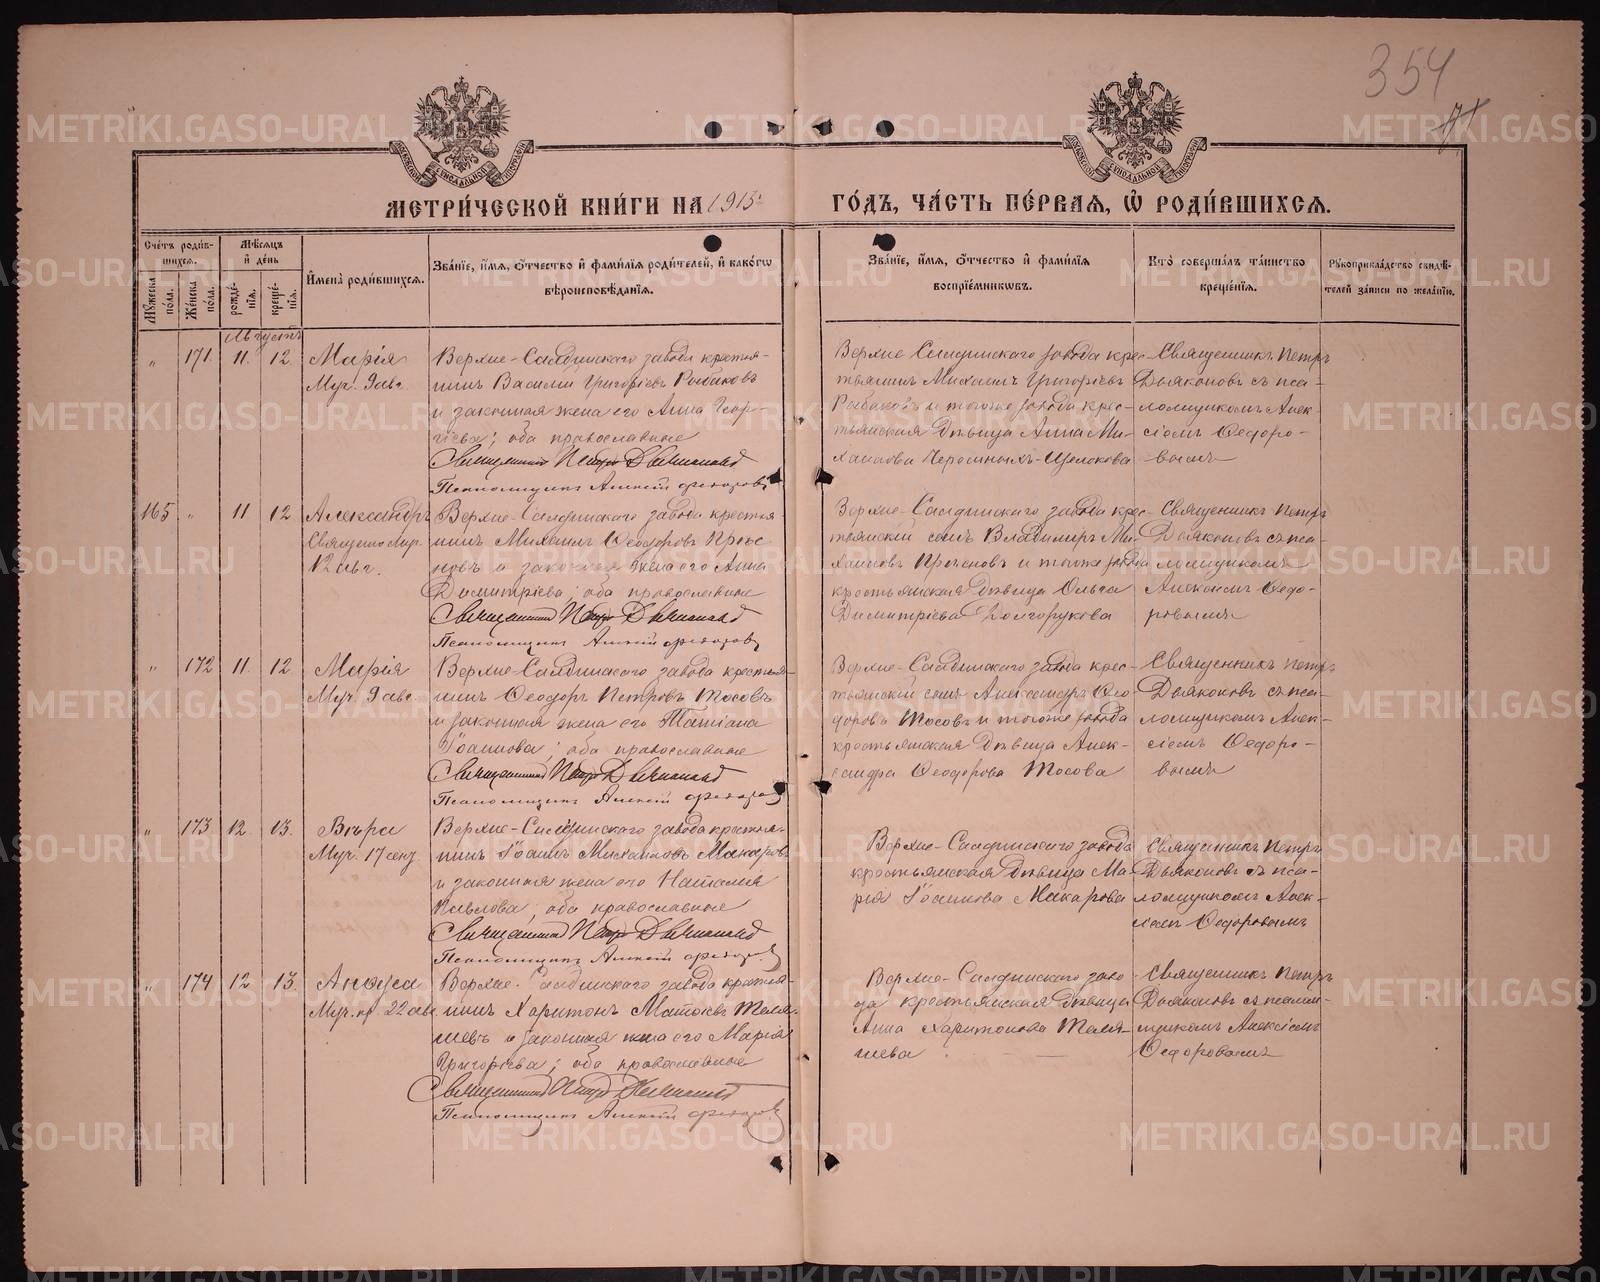 354
МЕТРИ́ЧЕСКОЙ КНИ́ГИ НА 1913 г.
ГО́ДЪ, ЧА́СТЬ ПЕ́РВАЯ, Ѡ҆ РОДИ́ВШИХСЯ.
Сче́тъ роди́вшихся.
Мѣ́сяцъ и҆ де́нь
И҆мена̀ роди́вшихся.
Зва́нїе, и҆́мя, ѻ҆́тчество и҆ фами́лїя роди́телей, и҆ како́гѡ
вѣроисповѣ́данїя.
Зва́нїе, и҆́мя, ѻ҆́тчество и҆ фами́лїя
воспрїе́мникѡвъ.
Кто̀ соверша́лъ та́инство
креще́нїя.
Рꙋкоприкла́дство свидѣ́-
телей за́писи по жела́нїю.
Мꙋ́жеска по́ла.
Же́нска по́ла.
рожде́нїя.
креще́нїя.
Августъ
" 171. 11. 12. Марія
Муч. 9 авг.
Верхне-Салдинскаго завода крестья-
нинъ Василій Григоріевъ Рыбаковъ
и законная жена его Анна Геор-
гіева; оба православные
Священникъ Петръ Дьяконовъ
Псаломщикъ Алексій Федоровъ
Верхне-Салдинскаго завода крес-
тьянинъ Михаилъ Григоріевъ
Рыбаковъ и тогоже завода крес-
тьянская дѣвица Анна Ми-
хаилова Щелокова
Священникъ Петръ
Дьяконовъ съ пса-
ломщикомъ Алек-
сіемъ Ѳедоро-
вымъ
165 " 11 12 Александръ
Священномуч.
12 авг.
Верхне-Салдинскаго завода крестья-
нинъ Михаилъ Ѳеодоровъ
и законная жена его Анна
Димитріева; оба православные
Священникъ Петръ Дьяконовъ
Псаломщикъ Алексій Федоровъ
Верхне-Салдинскаго завода крес-
тьянскій сынъ Владимиръ Ми-
хаиловъ и тогоже завода
крестьянская дѣвица Ольга
Димитріева Долгорукова
Священникъ Петръ
Дьяконовъ съ пса-
ломщикомъ
Алексіемъ Ѳедо-
ровымъ
" 172 11. 12 Марія
Муч. 9 авг.
Верхне-Салдинскаго завода крестья-
нинъ Ѳеодоръ Петровъ Тосовъ
и законная жена его Татіана
Іоаннова; оба православные
Священникъ Петръ Дьяконовъ
Псаломщикъ Алексій Федоровъ
Верхне-Салдинскаго завода крес-
тьянскій сынъ Александръ Ѳео-
доровъ Тосовъ и тогоже завода
крестьянская дѣвица Алек-
сандра Ѳеодорова Тосова
Священникъ Петръ
Дьяконовъ съ пса-
ломщикомъ Алек-
сіемъ Ѳедоро-
вымъ
" 173 12. 13. Вѣра
Муч. 17 сент.
Верхне-Салдинскаго завода крестья-
нинъ Іоаннъ Михаиловъ Макаровъ
и законная жена его Наталія
Павлова; оба православные
Священникъ Петръ Дьяконовъ
Псаломщикъ Алексій Федоровъ
Верхне-Салдинскаго завода
крестьянская дѣвица Ма-
рія Іоаннова Макарова
Священникъ Петръ
Дьяконовъ съ пса-
ломщикомъ Алек-
сіемъ Ѳедоровымъ
" 174 12 13. Анѳуса
Муч. пр. 22 авг.
Верхне-Салдинскаго завода крестья-
нинъ Харитонъ Матѳіевъ Теля-
шевъ и законная жена его Марія
Григоріева; оба православные
Священникъ Петръ Дьяконовъ
Псаломщикъ Алексій Федоровъ
Верхне-Салдинскаго заво-
да крестьянская дѣвица
Анна Харитонова Теля-
шева
Священникъ Петръ
Дьяконовъ съ псалом-
щикомъ Алексіемъ
Ѳедоровымъ
METRIKI.GASO-URAL.RU